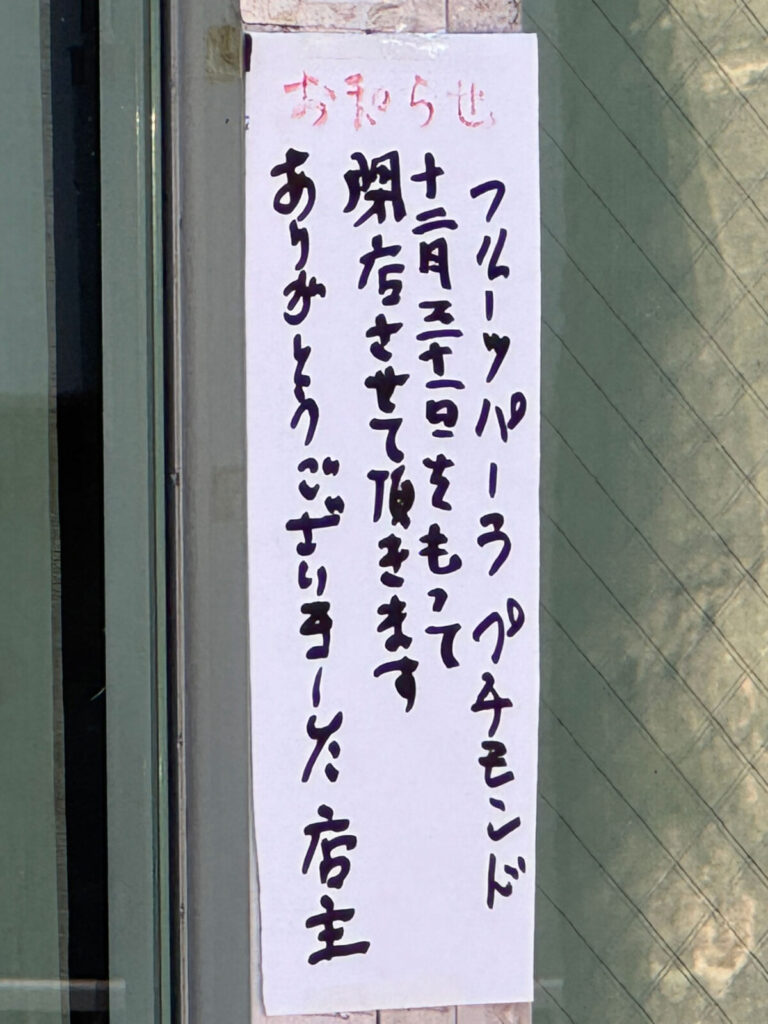 お知らせ
フルーツパーラ プチモンド
十二月三十一日をもって
閉店させて頂きます
ありがとうございました 店主